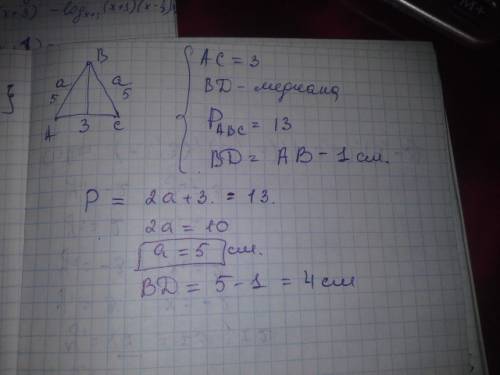 -log (x+5)(x-
B
a a
5 5
A 3 C
AC = 3
BD - медиана
P_ABC = 13
BD = AB - 1 см.
P = 2a + 3. = 13.
2a = 10
a = 5 см.
BD = 5 - 1 = 4 см
M+